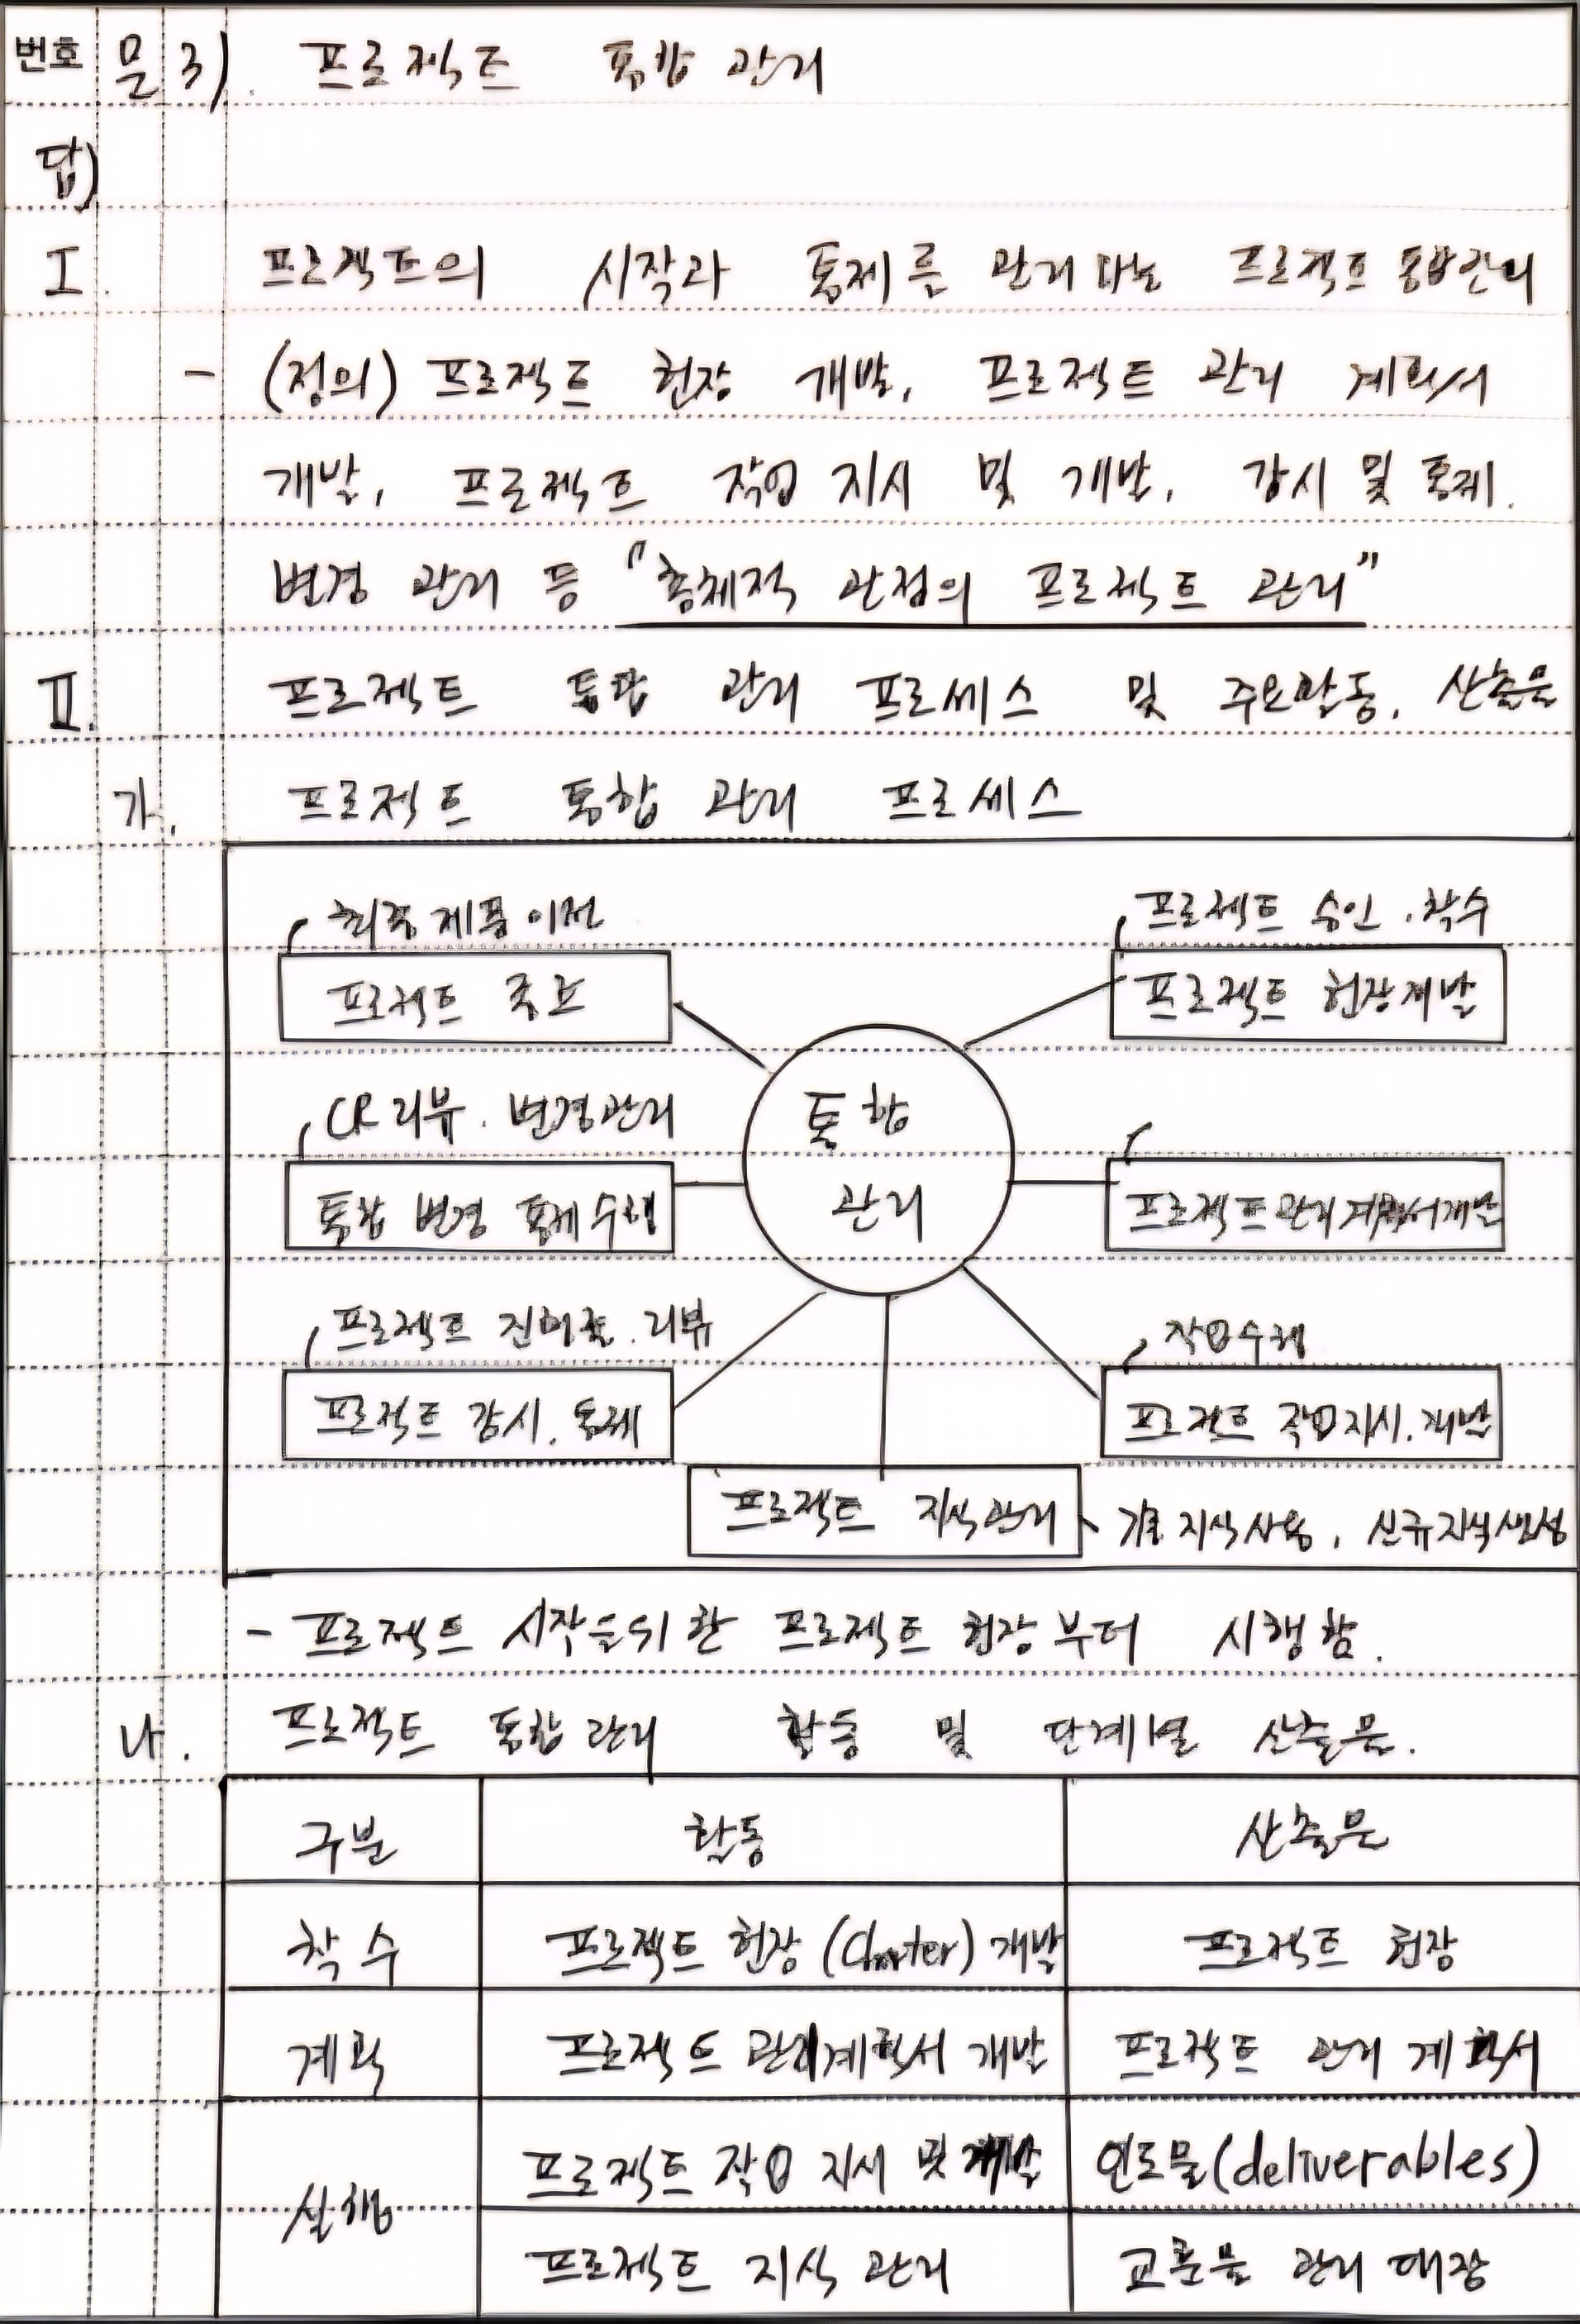 번호 문 3) 프로젝트 통합 관리
답)
I. 프로젝트의 시작과 통제를 관리하는 프로젝트 통합관리
- (정의) 프로젝트 헌장 개발, 프로젝트 관리 계획서
개발, 프로젝트 작업 지시 및 개발, 감시 및 통제.
변경 관리 등 "총체적 관점의 프로젝트 관리"
II. 프로젝트 통합 관리 프로세스 및 주요활동, 산출물
가. 프로젝트 통합 관리 프로세스
최종 제품 이전
프로젝트 승인. 착수
프로젝트 종료
프로젝트 헌장개발
CR 리뷰. 변경관리
통합
관리
통합 변경 통제 수행
프로젝트 관리 계획서 개발
프로젝트 진척도. 리뷰
작업수행
프로젝트 감시. 통제
프로젝트 작업지시. 개발
프로젝트 지식관리
기존 지식사용, 신규지식생성
- 프로젝트 시작을위한 프로젝트 헌장부터 시행함.
나. 프로젝트 통합관리 활동 및 단계별 산출물.
구분 활동 산출물
착수 프로젝트 헌장 (Charter) 개발 프로젝트 헌장
계획 프로젝트 관리계획서 개발 프로젝트 관리 계획서
실행 프로젝트 작업 지시 및 개발 인도물(deliverables)
프로젝트 지식 관리 교훈물 관리 대장